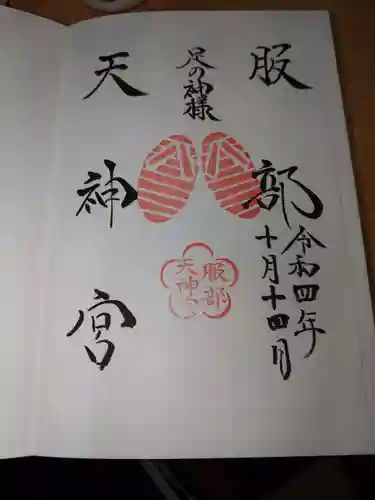 服部
令和四年
十月十四日
足の神様
天神宮
服部
天神